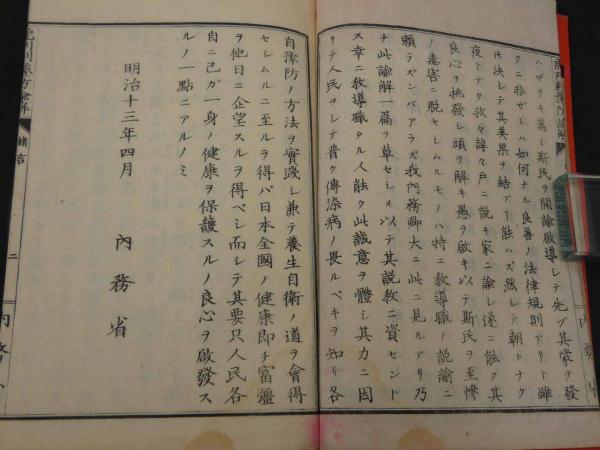 ハザリキ蓋シ斯民ヲ開諭啟導シテ先ヅ其蒙ヲ發
クニ非ザレハ如何ナル良善ノ法律規則アリト雖
𪜈決シテ其美果ヲ結ブヿ能ハズ然レ𪜈朝トナク
夜トナク孜々諄々戸ニ説キ家ニ諭シ遂ニ能ク其
良心ヲ挑發シ頑ヲ解キ愚ヲ啟キ以テ斯民ヲ至慘
ノ毒害ニ脱セシムルモノハ特ニ教導職ノ説諭ニ
頼ラズンバアラズ我内務卿大ニ此ニ見ルアリ乃
チ此諭解一篇ヲ草セシメ以テ其説教ニ資セント
ス幸ニ教導職タル人能ク此誠意ヲ體シ其力ニ因
リテ人民ヲシテ普ク傳染病ノ畏ルベキヲ知リ各
自豫防ノ方法ヲ實踐シ兼テ養生自衛ノ道ヲ會得
セシムルニ至ルヲ得バ日本全國ノ健康即チ富彊
ヲ他日ニ企望スルヲ得ベシ而シテ其要只人民各
自ニ己ガ一身ノ健康ヲ保護スルノ良心ヲ啟發ス
ルノ一點ニアルノミ
明治十三年四月
內務省
緒言
二